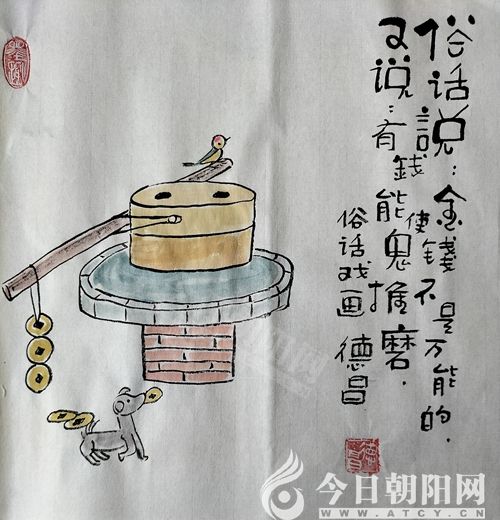 俗话説：金錢不是万能的．
又说：有錢能使鬼推磨．
俗话戏画 德昌
德昌
今日朝阳网
WWW.ATCY.CN